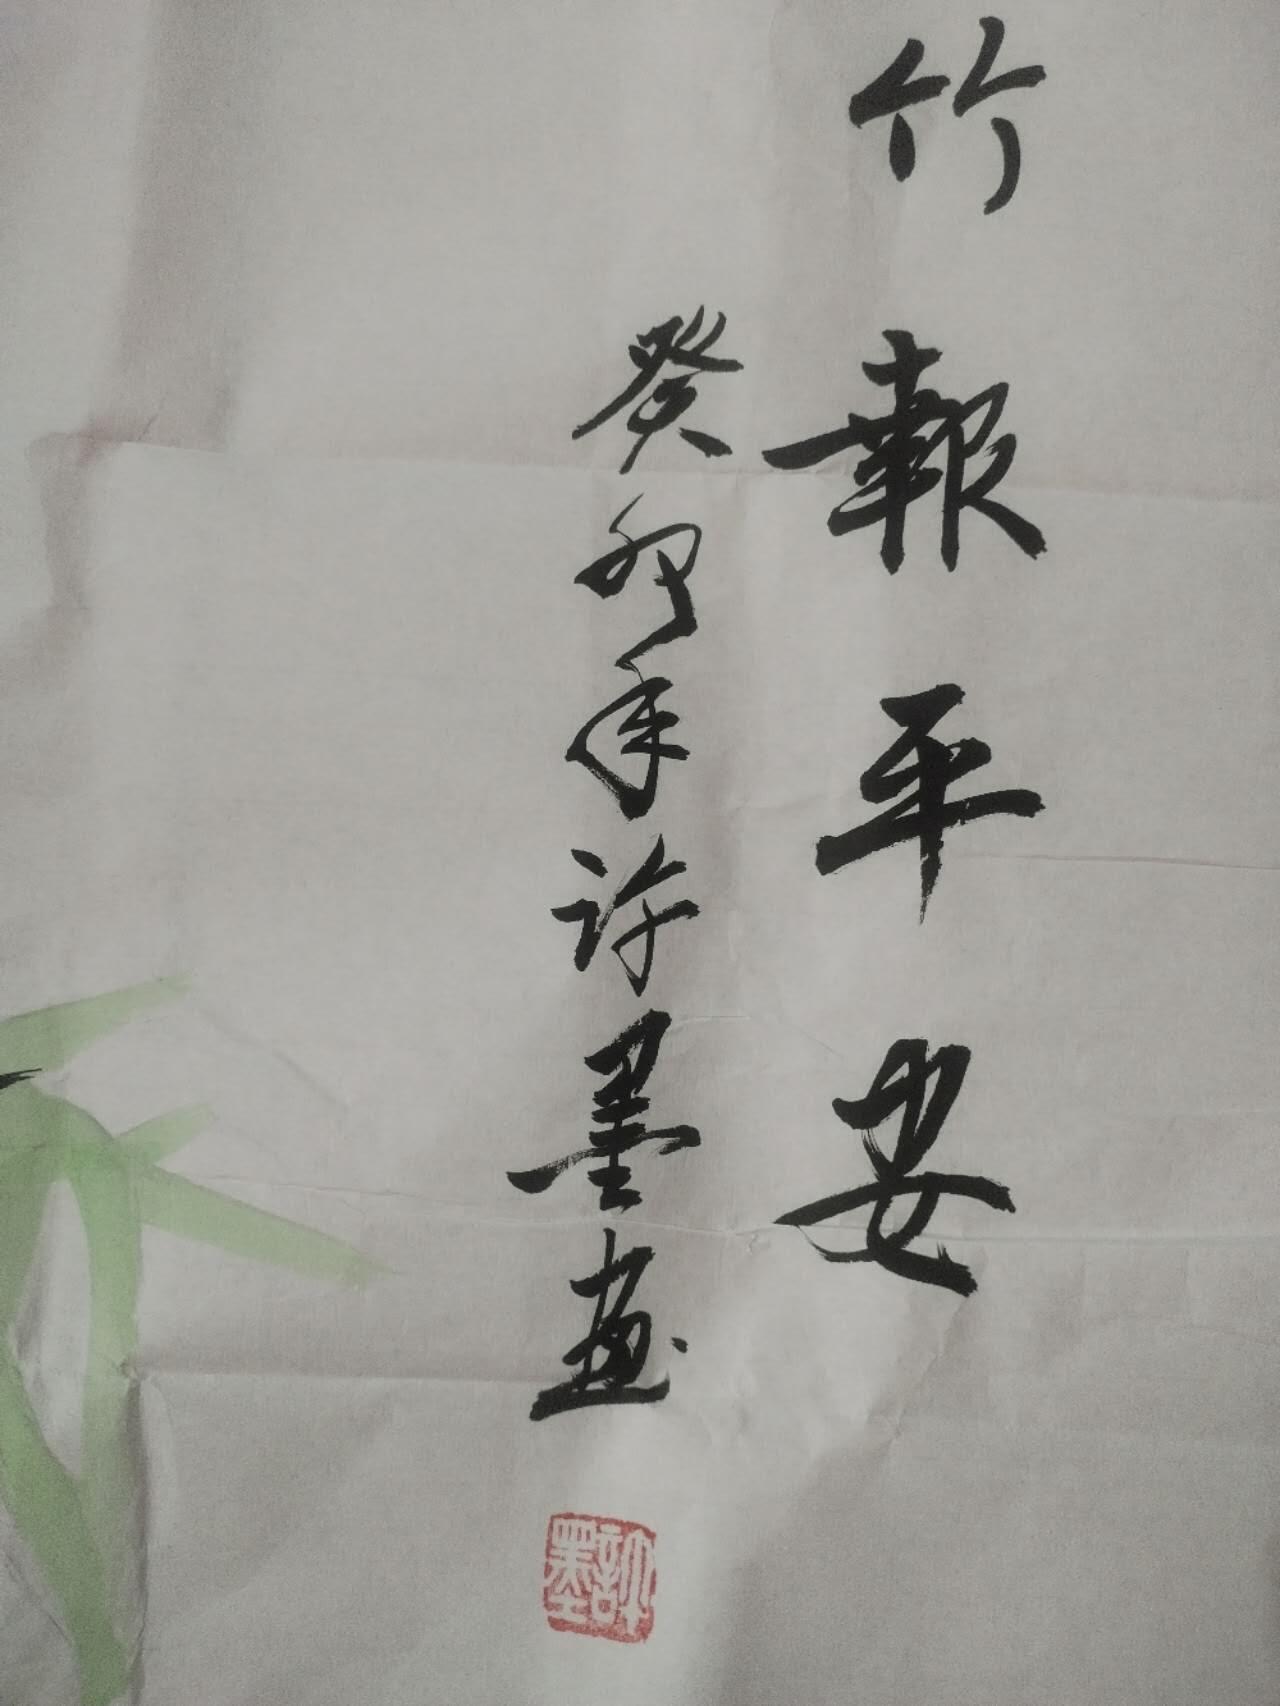 竹報平安
癸卯年許墨画
許墨